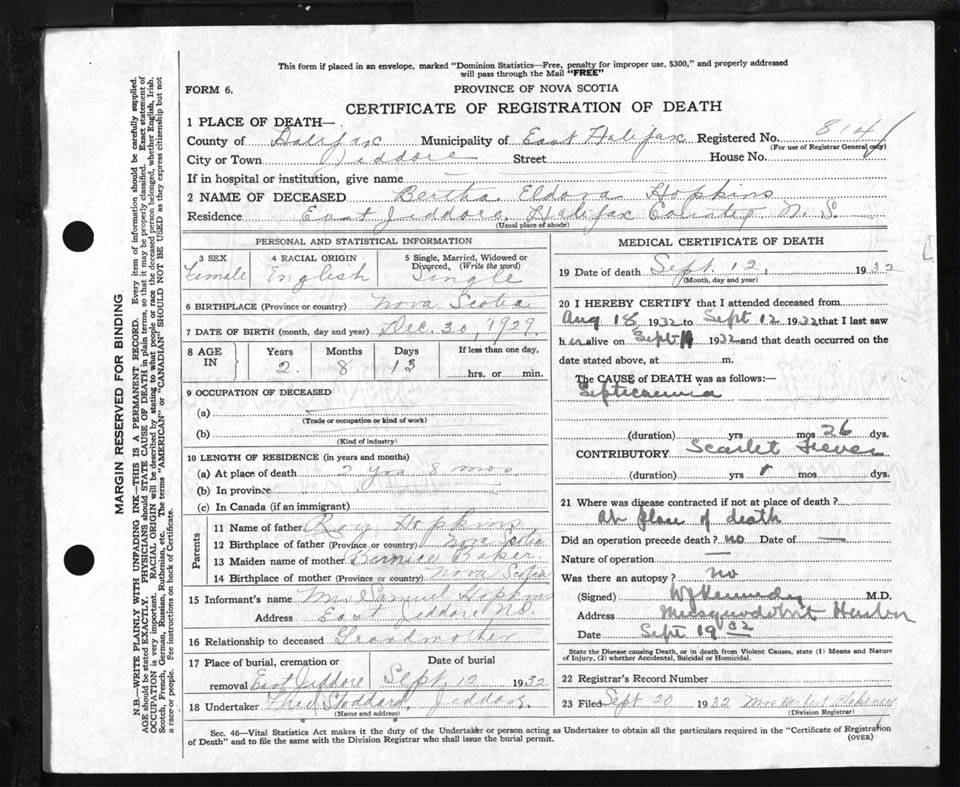 This form if placed in an envelope, marked "Dominion Statistics—Free, penalty for improper use, $300," and properly addressed
will pass through the Mail "FREE"
FORM 6. PROVINCE OF NOVA SCOTIA
CERTIFICATE OF REGISTRATION OF DEATH
1 PLACE OF DEATH—
County of Halifax Municipality of East Halifax Registered No. 814
(For use of Registrar General only)
City or Town Jeddore Street House No.
If in hospital or institution, give name
2 NAME OF DECEASED Bertha Eldova Hopkins
Residence East Jeddore, Halifax County N. S.
(Usual place of abode)
PERSONAL AND STATISTICAL INFORMATION
3 SEX 4 RACIAL ORIGIN 5 Single, Married, Widowed or Divorced, (Write the word)
Female English Single
6 BIRTHPLACE (Province or country) Nova Scotia
7 DATE OF BIRTH (month, day and year) Dec. 30, 1929
8 AGE IN Years Months Days If less than one day,
2 8 13 hrs. or min.
9 OCCUPATION OF DECEASED
(a)
(Trade or occupation or kind of work)
(b)
(Kind of industry)
10 LENGTH OF RESIDENCE (in years and months)
(a) At place of death 2 yrs 8 mos
(b) In province
(c) In Canada (if an immigrant)
Parents
11 Name of father Roy Hopkins
12 Birthplace of father (Province or country) Nova Scotia
13 Maiden name of mother Bernice Baker
14 Birthplace of mother (Province or country) Nova Scotia
15 Informant's name Mrs Samuel Hopkins
Address East Jeddore
16 Relationship to deceased Grandmother
17 Place of burial, cremation or removal Date of burial
East Jeddore Sept. 12 1932
18 Undertaker Theo Stoddard, Jeddore
(Name and address)
MEDICAL CERTIFICATE OF DEATH
19 Date of death Sept. 12, 1932
(Month, day and year)
20 I HEREBY CERTIFY that I attended deceased from
Aug 18 1932 to Sept 12 1932 that I last saw
her alive on Sept 11 1932 and that death occurred on the
date stated above, at m.
The CAUSE OF DEATH was as follows:—
Septicaemia
(duration) yrs mos 26 dys.
CONTRIBUTORY Scarlet Fever
(duration) yrs mos dys.
21 Where was disease contracted if not at place of death?
At place of death
Did an operation precede death? no Date of —
Nature of operation —
Was there an autopsy? no
(Signed) W J Kennedy M.D.
Address Musquodoboit Harbor
Date Sept 19 32
State the Disease causing Death, or in death from Violent Causes, state (1) Means and Nature
of Injury, (2) whether Accidental, Suicidal or Homicidal.
22 Registrar's Record Number
23 Filed Sept 20 1932 Mrs
(Division Registrar)
Sec. 46—Vital Statistics Act makes it the duty of the Undertaker or person acting as Undertaker to obtain all the particulars required in the "Certificate of Registration
of Death" and to file the same with the Division Registrar who shall issue the burial permit. (OVER)
MARGIN RESERVED FOR BINDING
N.B.—WRITE PLAINLY WITH UNFADING INK—THIS IS A PERMANENT RECORD. Every item of information should be carefully supplied.
AGE should be stated EXACTLY. PHYSICIANS should STATE CAUSE OF DEATH in plain terms, so that it may be properly classified. Exact statement of
OCCUPATION is very important. RACIAL ORIGIN will be described by stating to what people or race the deceased person belonged, whether English, Irish,
Scotch, French, German, Russian, Ruthenian, etc. The terms "AMERICAN" or "CANADIAN" SHOULD NOT BE USED as they express citizenship but not
a race or people. Fee instructions on back of Certificate.